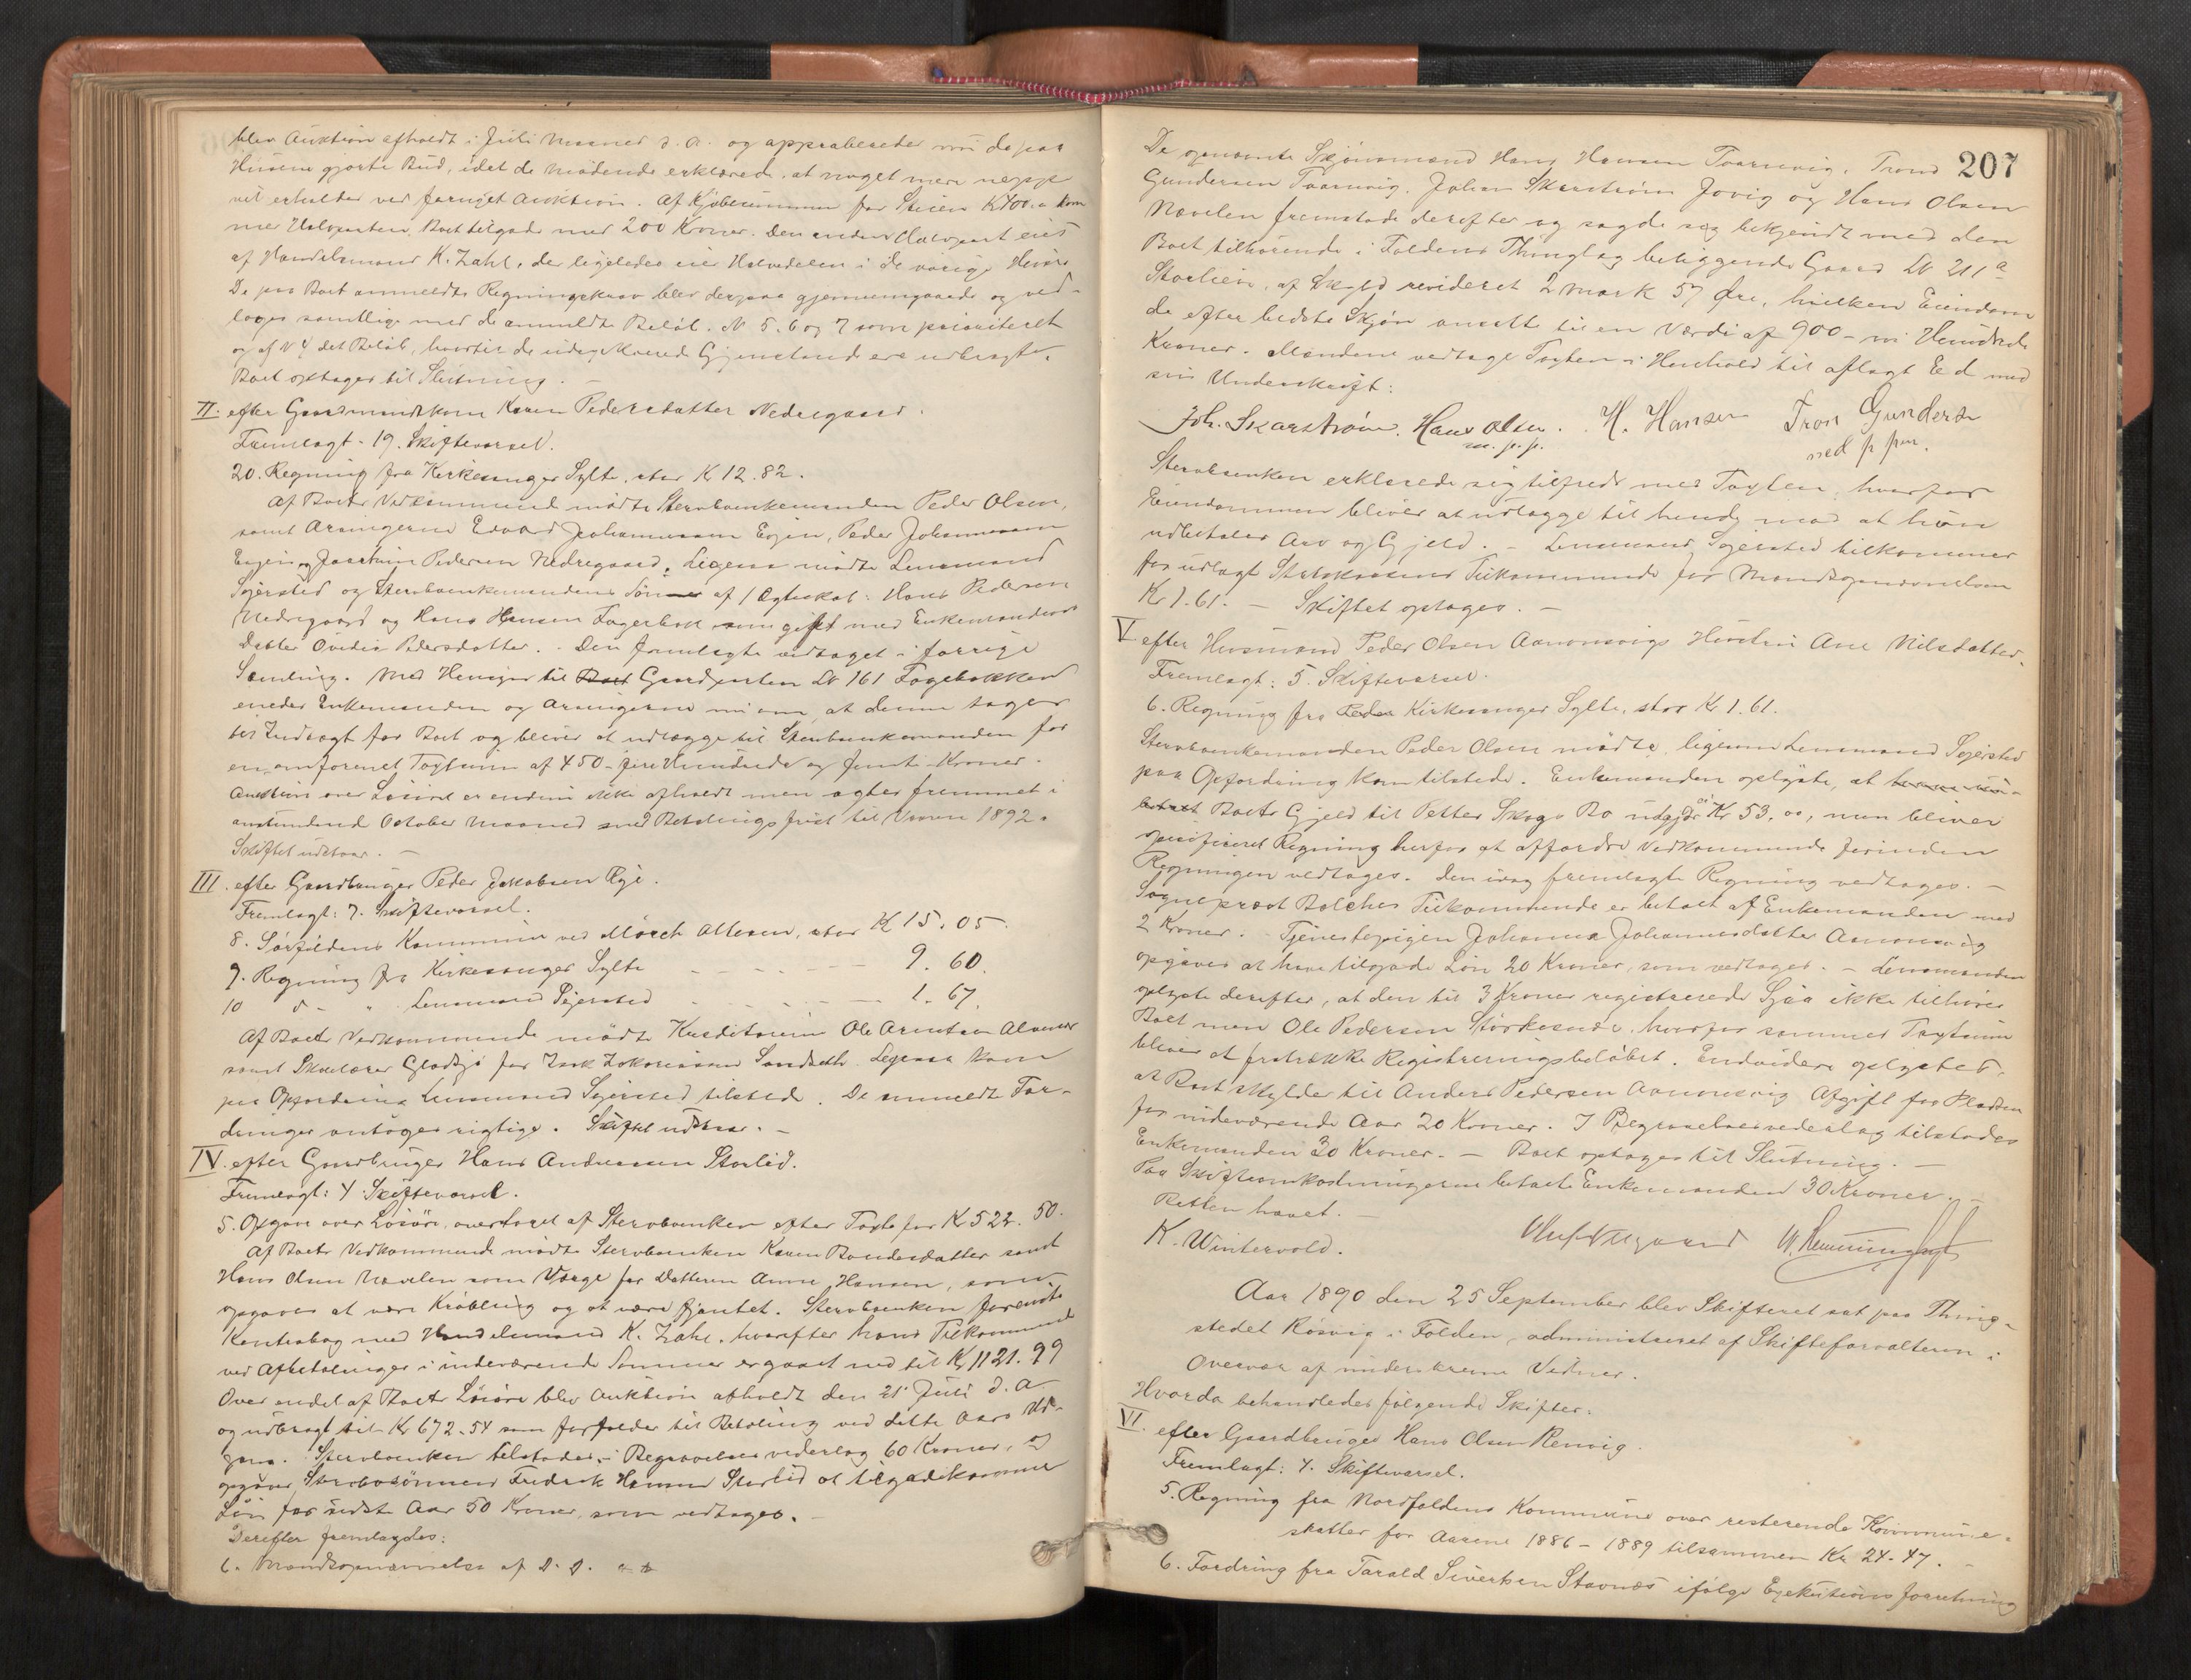 blev Auktion afholdt i Juli Maaned d. A. og approberedes nu de paa
Husene gjorte Bud, idet de Mødende erklærede, at noget mere neppe
vil erholdes ved fornyet Auktion. Af Kjøbesummen for Kr 400.00 kom
mer Halvparten Boet tilgode med 200 Kroner. Den anden Halvpart eies
af Handelsmand K. Zahl, der ligeledes eier Halvdelen i de øvrige Huse
De paa Boet anmeldte Regningskrav blev derpaa gjennemgaaede og ved-
toges samtlige med de anmeldte Beløb. N 5. 6 og 7 som prioriteret
og af N 4 det Beløb, hvortil de Gjenstande ere udbragte.
Boet optages til Slutning. –
II. efter Gaardmandskone Karen Pedersdatter Nedregaard.
Fremlagt: 19. Skiftevarsel.
20. Regning fra Kirkesanger Sylte, stor K 12.82.
Af Boets Vedkommende mødte Stervboenkemanden Peder Olsen,
samt Arvingerne Edvard Johannessen Eojen, Peder Johannessen
Eojen og Joachim Pedersen Nedregaard. Ligesaa mødte Lensmand
Sejersted og Stervboenkemandens Sønner af 1 Ægteskab: Hans Pedersen
Nedregaard og Hans Hansen Fagerbak som gift med Enkemandens
Datter Ovedia Pedersdatter. – Den fremlagte vedtaget i forrige
Samling. Med Hensyn til Boet Gaardparten LN 161 Fagerbakken
enedes Enkemanden og Arvingerne nu om, at denne tages
til Indtægt for Boet og bliver at udlægge til Stervboenkemanden for
en omforenet Taxtsum af 450 – fire Hundrede og femti Kroner.
Auktion over Løsøret er endnu ikke afholdt men agtes fremmet i
anstundende October Maaned med Betalingsfrist til Vaaren 1892.
Skiftet udstaar. –
III. efter Gaardbruger Peder Jakobsen Øje.
Fremlagt: 7. Skiftevarsel.
8. Sørfoldens Kommune ved Mörch Olsen, stor K 15.05.
9. Regning fra Kirkesanger Sylte – – – – – 9. 60.
10 d – " Lensmand Sejersted – – – – – 1. 67.
Af Boets Vedkommende mødte Kreditorerne Ole Arntsen Alvenes
samt Skolelærer Gladsjø for Isak Zakariassen Sandseth. Ligesaa kom
paa Opfordring Lensmand Sejersted tilstede. De anmeldte For-
dringer antoges rigtige. Skiftet udstaar. –
IV. efter Gaardbruger Hans Andreassen Storlid.
Fremlagt: 4 Skiftevarsel.
5. Opgave over Løsøre, overtaget af Stervboenken efter Taxt for Kr 522. 50.
Af Boets Vedkommende mødte Stervboenken Karen Bendesdatter samt
Hans Olsen Nævelen som Værge for Datteren Anne Hansen, som
opgaves at være Krøbling og at være fjantet. Stervboenken foreviste
Kontrabog med Handelsmand K. Zahl, hvorefter hans Tilkommende
ved Afbetalinger i indeværende Sommer er gaaet ned til Kr 1121.99
Over endel af Boets Løsøre blev Auktion afholdt den 21' Juli d. A.
og udbragt til Kr 672.54 som forfalder til Betaling ved dette Aars Ud-
gang. Stervboenken tilstodes i Begravelsesvederlag 60 Kroner, og
opgaves Stervbosønnen Fredrik Hansen Storlid at tilgodekomme
Løn for sidste Aar 50 Kroner, som vedtoges. –
Derefter fremlagdes:
6. Mandsopnævnelse af D. D.
207
De opnævnte Skjønsmænd Hans Hansen Tvaervig, Trond
Gundersen Tvaervig, Johan Skarstrøm Jovig og Hans Olsen
Nævelen fremstode derefter og sagde sig bekjendt med den
Boet tilhørende i Foldens Thinglag beliggende Gaard LN 211 a
Storlien, af Skyld revideret 2 Mark 57 Øre, hvilken Eiendom
de efter bedste Skjøn ansatte til en Værdi af 900 – ni Hundrede
Kroner. Mændene vedtoge Taxten i Henhold til aflagt Ed med
sin Underskrift:
Joh. Skarstrøm. Hans Olsen. H. Hansen Tron Gunders
m. p. p. med p pen.
Stervboenken erklærede sig tilfreds med Taxten, hvorfor
Eiendommen bliver at udlægge til hende mod at hun
udbetaler Arv og Gjeld. – Lensmand Sejersted tilkommer
for udlagt Statskassens Tilkommende for Mandsopnævnelsen
Kr 1.61. – Skiftet optages. –
V. efter Husmand Peder Olsen Aanonsvigs Hustru Ane Nilsdatter.
Fremlagt: 5. Skiftevarsel.
6. Regning fra Peder Kirkesanger Sylte, stor Kr 1.61.
Stervboenkemanden Peder Olsen mødte, ligesom Lensmand Sejersted
paa Opfordring kom tilstede. Enkemanden oplyste, at
Boets Gjeld til Petter Skogs Bo udgjør Kr 53.00, men bliver
specificeret Regning herfor at affordre Vedkommende forinden
Regningen vedtages. Den idag fremlagte Regning vedtages. –
Sogneprest Balches Tilkommende er betalt af Enkemanden med
2 Kroner. – Tjenestepigen Johanna Johannesdatter Aanonsvig
opgaves at have tilgode Løn 20 Kroner, som vedtages. – Lensmanden
oplyste derefter, at den til 3 Kroner registrerede Sjaa ikke tilhører
Boet men Ole Pedersen Storkesand, hvorfor sammes Taxtsum
bliver at fratrække Registreringsbeløbet. Endvidere oplystes,
at Boet skylder til Anders Pedersen Aanonsvig Afgift for Pladsen
for indeværende Aar 20 Kroner. I Begravelsesvederlag tilstodes
Enkemanden 30 Kroner. – Boet optages til Slutning. –
Paa Skifteomkostningerne betalte Enkemanden 30 Kroner. –
Retten hævet. –
K. Wintervold.
Aar 1890 den 25 September blev Skifteret sat paa Thing-
stedet Røsvig i Folden, administreret af Skifteforvalteren i
Overvær af underskrevne Vidner.
Hvorda behandledes følgende Skifter:
VI. efter Gaardbruger Hans Olsen Renvig.
Fremlagt: 4. Skiftevarsel.
5. Regning fra Nordfoldens Kommune over resterende Kommune-
skatter for Aarene 1886 – 1889 tilsammen Kr. 24.47. –
6. Fordring fra Tarald Sivertsen Stavnæs ifølge Exekutionsforretning